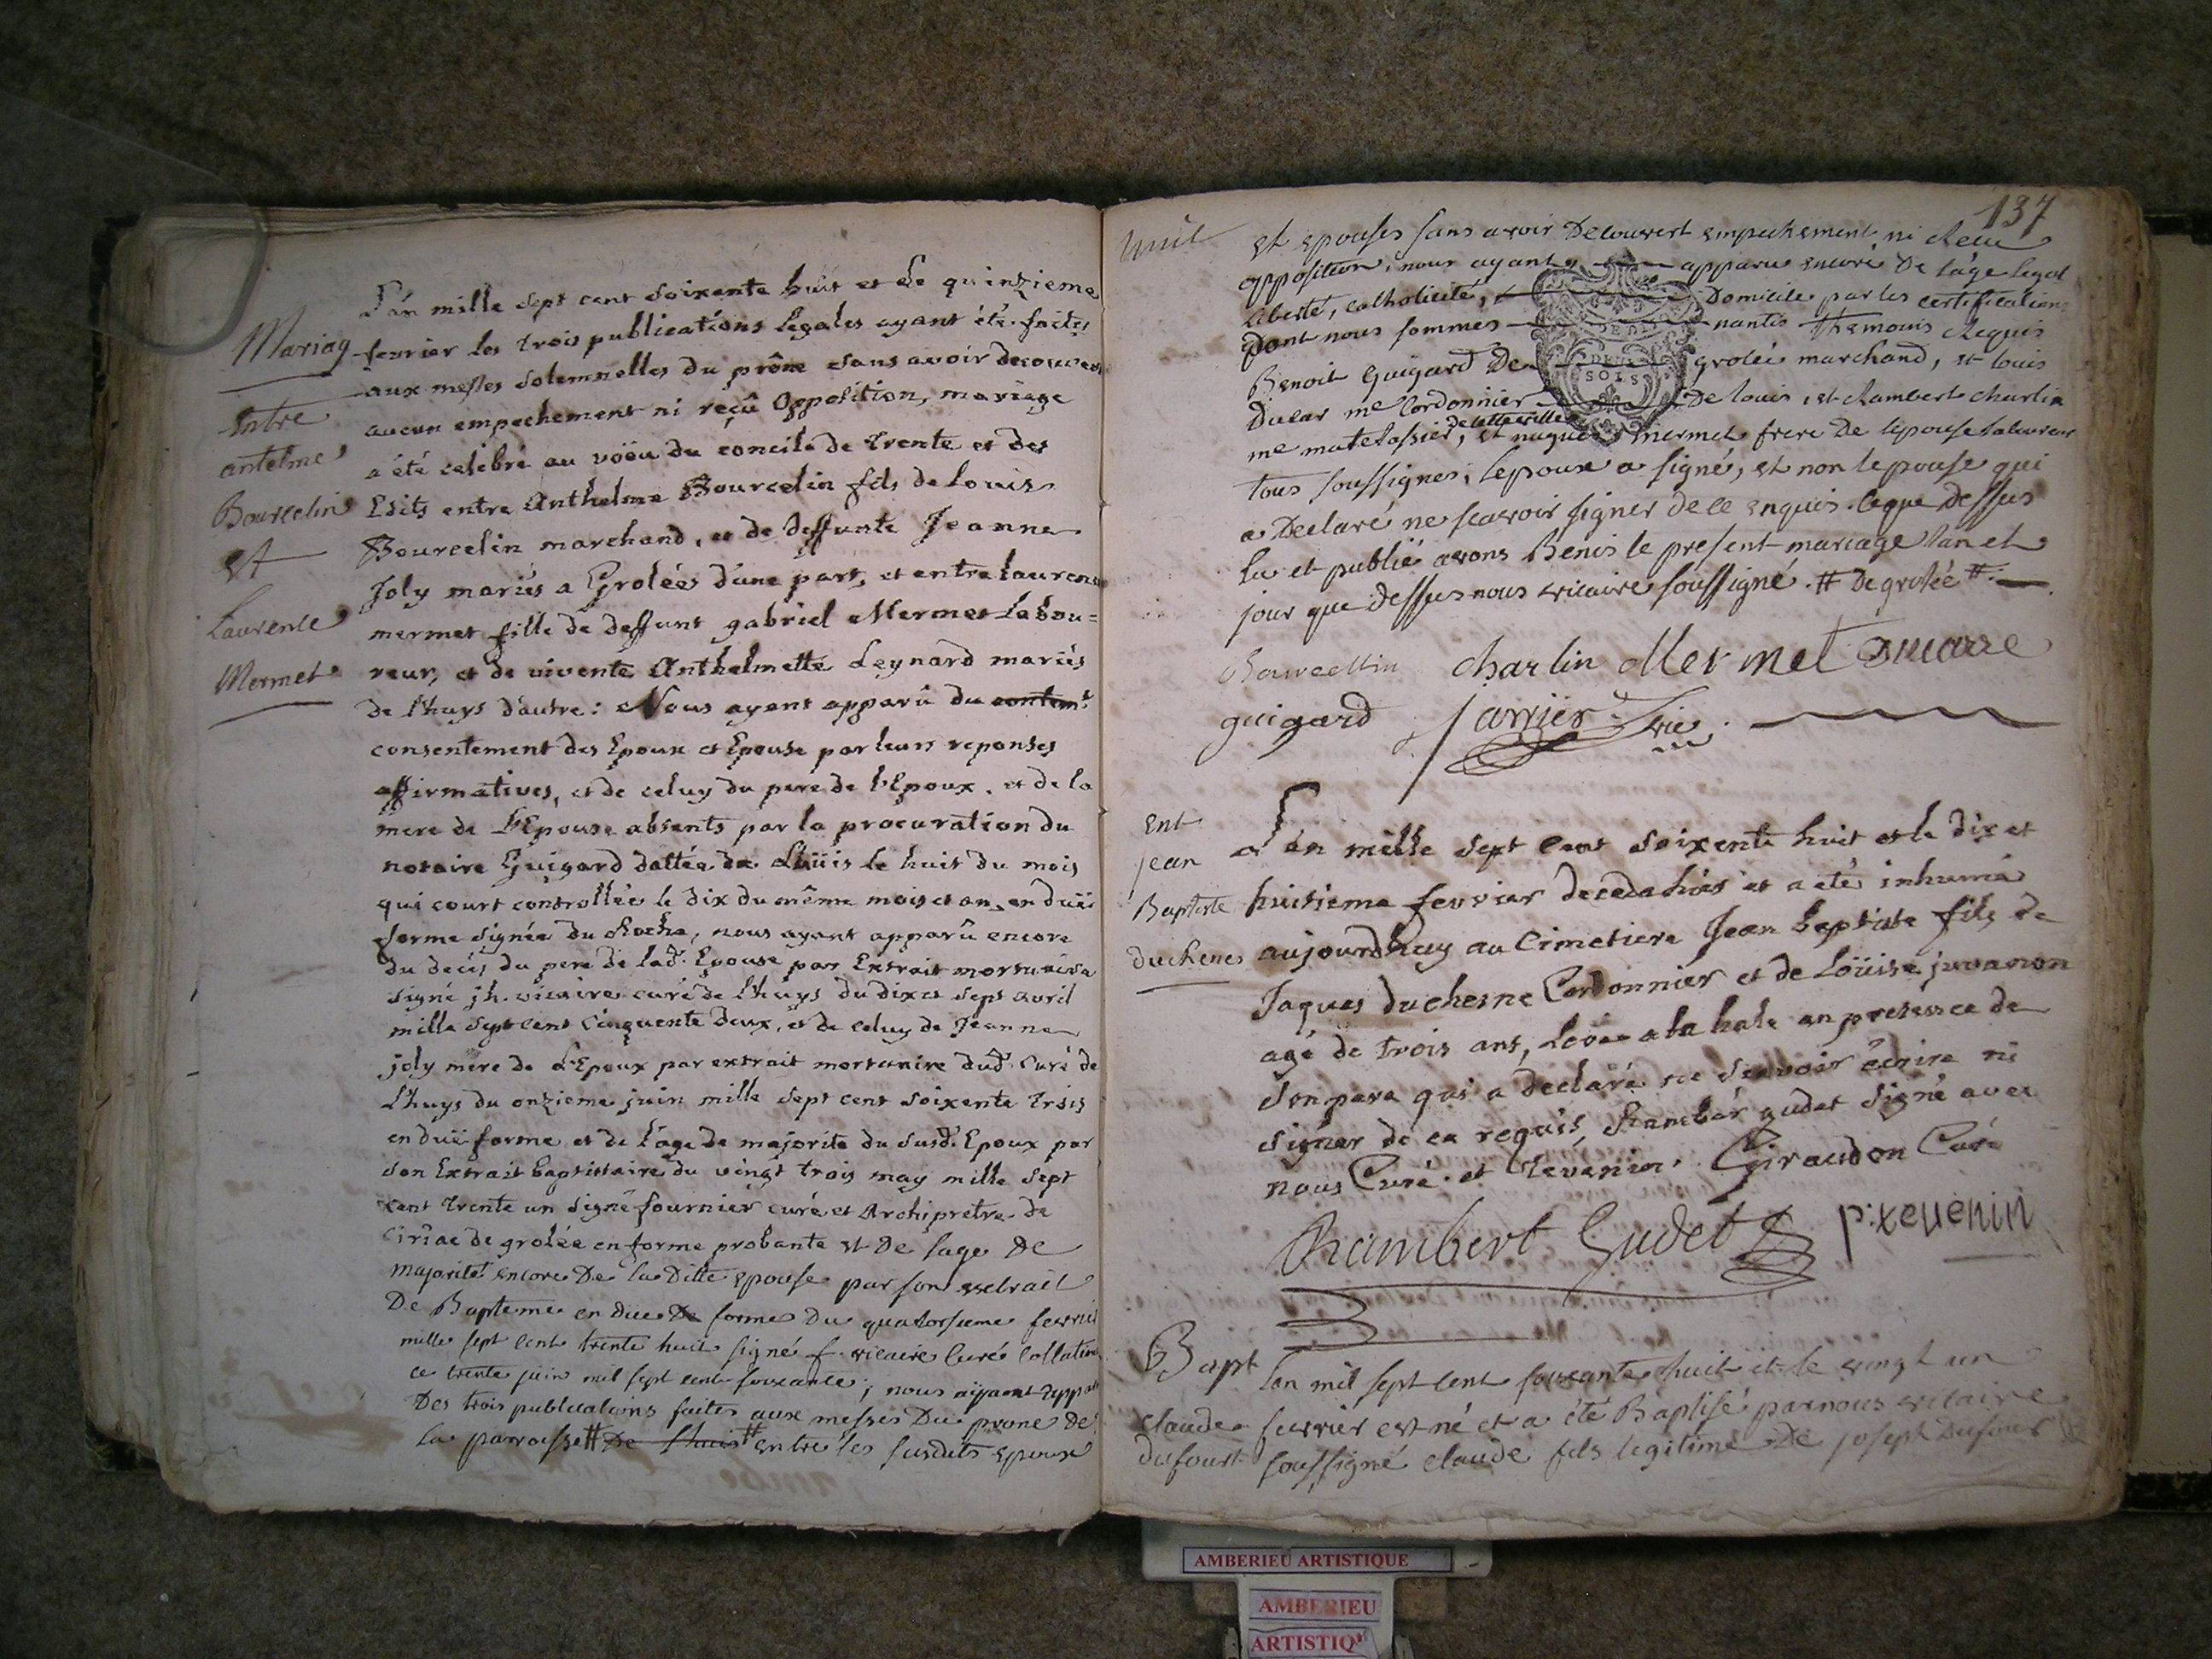 Mariag
entre
antelme
Bourcelin
et
Laurence
Mermet
L'an mille sept cent soixente huit et Le quinzieme
fevrier les trois publications legales ayant été faites
aux messes solemnelles du prône sans avoir decouvert
aucun empechement ni reçû opposition, mariage
a été celebré au vöeu du concile de trente et des
Edits entre Anthelme Bourcelin fils de louis
Bourcelin marchand, et de deffunte Jeanne
Joly mariés a Grolée d'une part, et entre laurence
mermet fille de deffunt gabriel Mermet Labou=
reur, et de vivente Anthelmette Leynard mariés
de lhuys d'autre : Nous ayant apparû du contem.t
consentement des Epoux et Epouse par leurs reponses
affirmatives, et de celuy du pere de l'Epoux, et de la
mere de l'Epouse absents par la procuration du
notaire Guigard dattée de Lhüis le huit du mois
qui court controllée le dix du même mois et an, en düe
forme signée du Rocha, nous ayant apparû encore
du decés du pere de lad. Epouse par Extrait mortuaire
signé jh. vicaire curé de lhuys du dix et sept avril
mille sept cent cinquente deux, et de celuy de Jeanne
joly mere de L'Epoux par extrait mortuaire dud. Curé de
Lhuys du onzieme juin mille sept cent soixente trois
en düe forme et de l'age de majorite du susd. Epoux par
son Extrait baptistaire du vingt trois may mille sept
cent trente un signé fournier curé et Archipretre de
de grolée en forme probante et De lage De
majorité encore De la Ditte epouse par son extrait
De Bapteme en due De forme Du quatorsieme fevrier
mille sept cent trente huit signé f. vicaire Curé Collationé
ce trente juin mil sept cent soixante ; nous aijant apparu
Des trois publications faites aux messes Du prone De
La parroisse # De Lhuis # entre les susdits epoux
137
et epouses sans avoir Decouvert empechement ni Receu
opposition, nous ayant apparu encore De l'age legal
liberté, catholicité, Domicile par les certifications
dont nous sommes nantis themoins Requis
Benoit guigard De grolée marchand, et louis
Ducar me Cordonnier De louis, et chambert charlin
me matelassier, de cette ville et mermet frere De lepouse laboureur
tous soussignes, lepoux a signé, et non lepouse qui
a Declaré ne scavoir signer de ce enquis. ceque dessus
lu et publié avons Benis le present mariage lan et
jour que dessus nous vicaire soussigné. # De grolée #.
Bourcellin charlin Mermet Ducarre
guigard Jarrier vic.
SOLS
Ent
jean
Baptiste
duchenes
L'an mille sept cent soixente huit et le dix et
huitieme fevrier deceda hier et a été inhumé
aujourdhuy au Cimetiere Jean baptiste fils de
Jaques duchesne Cordonnier et de Loüise juvanon
agé de trois ans, a la hale en presence de
son pere qui a declaré ne scavoir écrire ni
signer de ce requis, Chambér gudet signé avec
nous Curé. et Tevenin. Giraudon Curé
Chambert Gudet p:xeuenin
Bapt
claude
dufour
Lan mil sept cent soixante huit et le vingt un
fevrier est né et a été Baptisé par nous vicaire
soussigné claude fils legitime De joseph Dufour
AMBERIEU ARTISTIQUE
AMBERIEU
ARTISTIQ